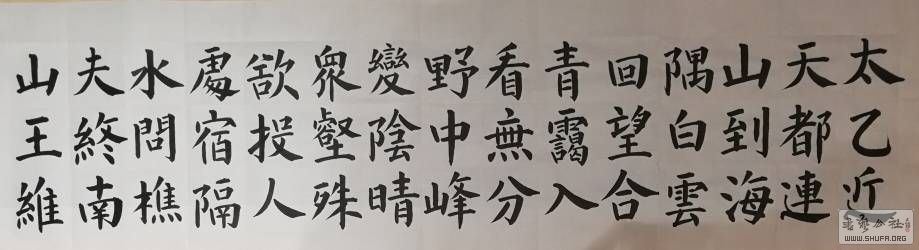 太乙近
天都連
山到海
隅白雲
回望合
青靄入
看無分
野中峰
變陰晴
眾壑殊
欲投人
處宿隔
水問樵
夫終南
山王維
WWW.SHUFA.ORG